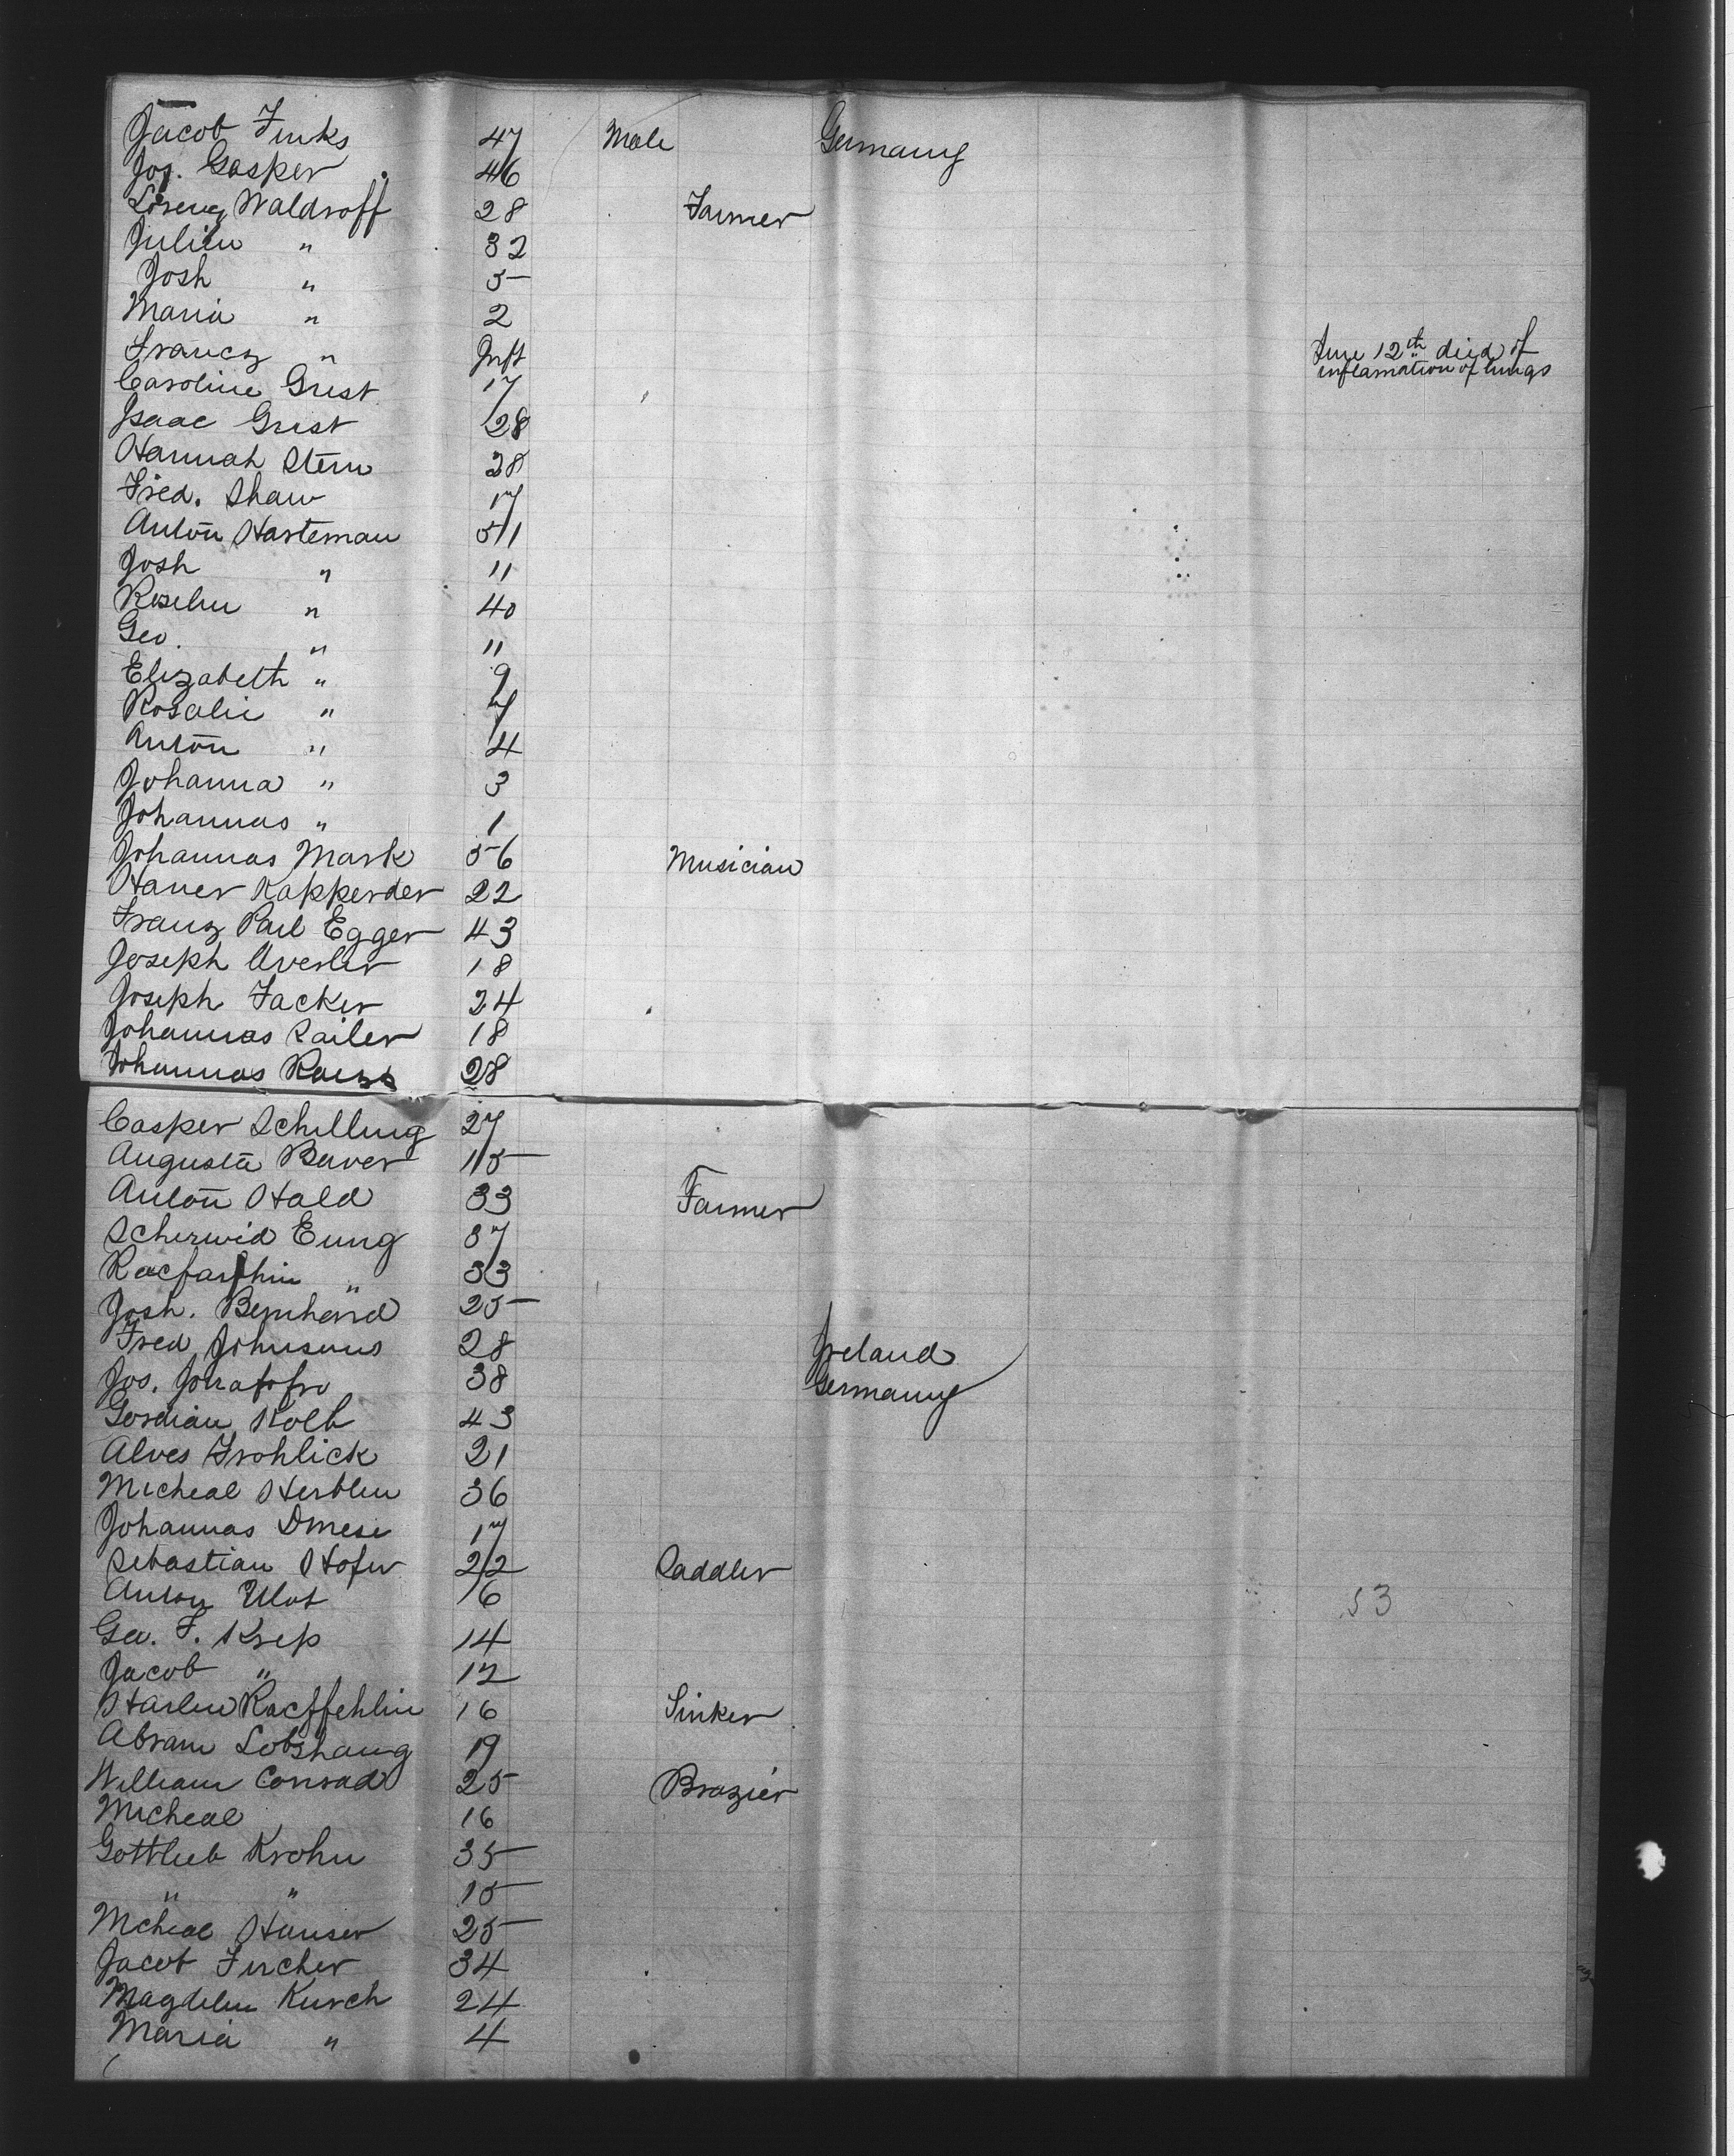 Jacob Finks 47 Male Germany
Jos. Gasper 46
Lorenz Waldroff 28 Farmer
Julien " 32
Josh " 5
Maria " 2
Francz " Inft June 12th died of
inflamation of lungs
Caroline Grist 17
Isaac Grist 28
Hannah Stern 28
Fred. Shaw 17
Anton Harteman 51
Josh " 11
Roselin " 40
Geo. " 11
Elizabeth " 9
Rosalie " 7
Anton " 4
Johanna " 3
Johannas " 1
Johannas Mark 56 Musician
Haner Kapperder 22
Franz Paul Egger 43
Joseph Averler 18
Joseph Facker 24
Johannas Sailer 18
Johannas 28
Casper Schilling 27
Augusta Baver 15
Anton Hald 33 Farmer
Scherwid Eung 37
" 33
Josh. Bernhard 25
Fred Johnsons 28 Ireland
Jos. 38 Germany
Gordian Kolb 43
Alves Frohlick 21
Micheal Herblin 36
Johannas Dmese 17
Sebastian Hofer 22 Saddler
Anton Ulot 16 53
Geo. F. Krep 14
Jacob " 12
16 Sinker
Abram Lobshang 19
William Conrad 25 Brazier
Micheal 16
Gottlieb Krohn 35
" " 15
Micheal Hauser 25
Jacob Fircher 34
Magdelin Kurch 24
Maria " 4